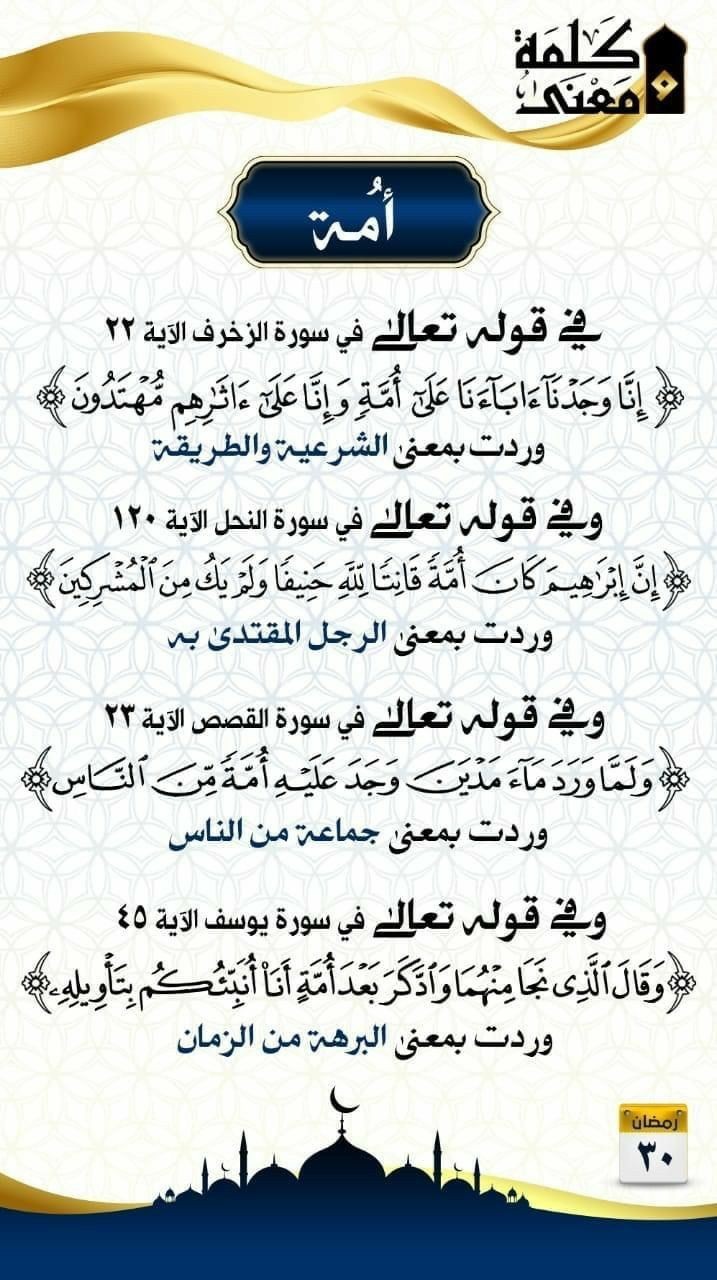 كَلِمَة
مَعْنَىٰ
أُمة
في قوله تعالىٰ في سورة الزخرف الآية ٢٢
﴿إِنَّا وَجَدْنَآ ءَابَآءَنَا عَلَىٰٓ أُمَّةٖ وَإِنَّا عَلَىٰٓ ءَاثَٰرِهِم مُّهْتَدُونَ﴾
وردت بمعنىٰ الشرعية والطريقة
وفي قوله تعالىٰ في سورة النحل الآية ١٢٠
﴿إِنَّ إِبْرَٰهِيمَ كَانَ أُمَّةٗ قَانِتٗا لِّلَّهِ حَنِيفٗا وَلَمْ يَكُ مِنَ ٱلْمُشْرِكِينَ﴾
وردت بمعنىٰ الرجل المقتدىٰ به
وفي قوله تعالىٰ في سورة القصص الآية ٢٣
﴿وَلَمَّا وَرَدَ مَآءَ مَدْيَنَ وَجَدَ عَلَيْهِ أُمَّةٗ مِّنَ ٱلنَّاسِ﴾
وردت بمعنىٰ جماعة من الناس
وفي قوله تعالىٰ في سورة يوسف الآية ٤٥
﴿وَقَالَ ٱلَّذِى نَجَا مِنْهُمَا وَٱدَّكَرَ بَعْدَ أُمَّةٍ أَنَا۠ أُنَبِّئُكُم بِتَأْوِيلِهِۦ﴾
وردت بمعنىٰ البرهة من الزمان
رمضان
٣٠